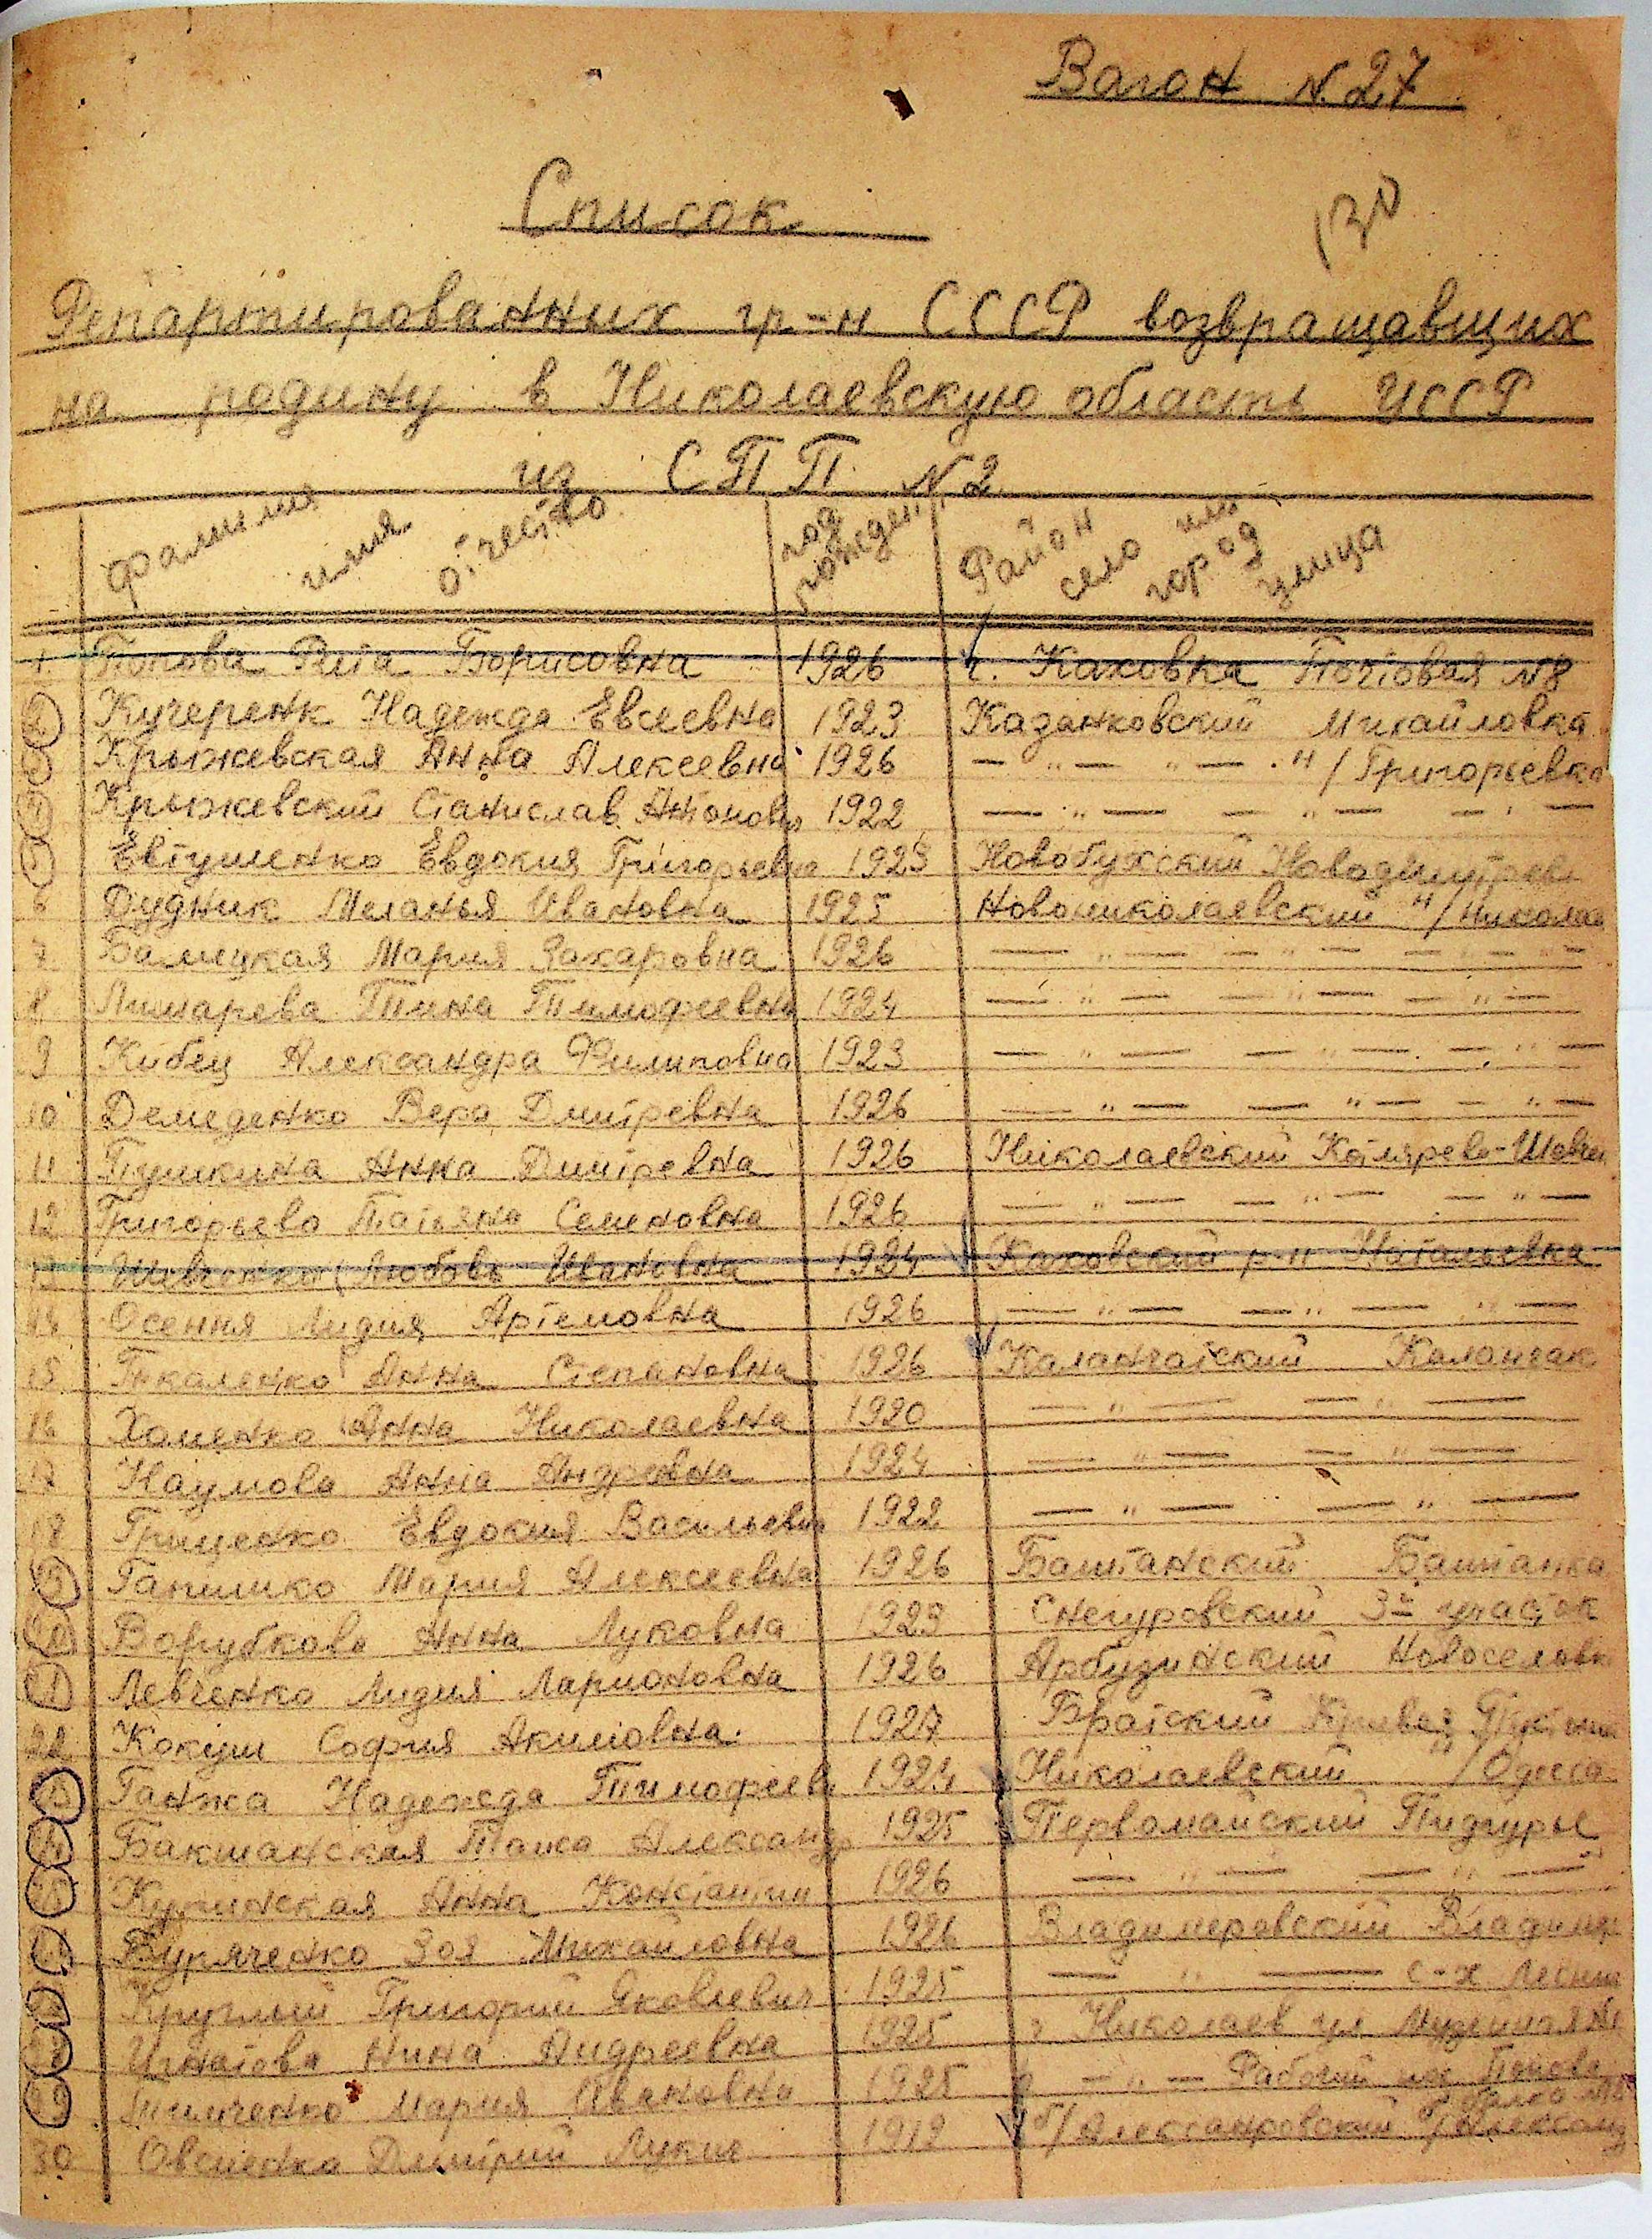 Вагон N. 27
130
Список
Репартированных гр-н СССР возвращавщих
на родину в Николаевскую область УССР
из СПП N2
фамилия имия отчество год рожден. Район село или город улица
1 Попова Рита Борисовна 1926 г. Каховка Почтовая N8
2 Кучеренк Надежда Евсеевна 1923 Казанковский Михайловка
3 Крыжевская Анна Алексеевна 1926 — " — " — " / Григорьевка
4 Крыжевский Станислав Антонов 1922 — " — — " — — " —
5 Евтушенко Евдокия Григорьевна 1923 Новобугский Новодмитрев
6 Дудник Меланья Ивановна 1925 Новониколаевский "/Николаев
7 Балицкая Мария Захаровна 1926 — " — — " — — " —
8 Лимарева Тина Тимофеевна 1924 — " — — " — — " —
9 Кибец Александра Филиповна 1923 — " — — " — — " —
10 Демеденко Вера Дмитревна 1926 — " — — " — — " —
11 Пушкина Анна Дмитревна 1926 Николаевский Котлярево-Шевчен
12 Григорьева Татьяна Семеновна 1926 — " — — " — — " —
13 Шевченко Любовь Ивановна 1924 Каховский р-н Натальевка
14 Осення Лидия Артемовна 1926 — " — — " — " —
15 Ткаленко Анна Степановна 1926 Каланчатский Каланчак
16 Хоменко Анна Николаевна 1920 — " — — " —
17 Наумова Анна Андреевна 1924 — " — — " —
18 Гриценко Евдокия Васильевна 1922 — " — — " —
19 Гапишко Мария Алексеевна 1926 Баштанский Баштанка
20 Ворубкова Анна Луковна 1923 Снегуровский 3й участок
21 Левченко Лидия Ларионовна 1926 Арбузинский Новоселовк
22 Кокуш София Акимовна. 1927 Братский Кривое
23 Ганжа Надежда Тимофеев 1924 Николаевский "/Одесса
24 Бакшанская Тажа Александр 1925 Первомайский Пидгурье
25 Анна Константин 1926 — " — — " —
26 Буряченко Зоя Михайловна 1926 Владимеровский Владимер
27 Круглый Григорий Яковлевич 1925 — " — с-х
28 Игнатова Нина Андреевна 1925 г Николаев ул
29 Тимченко Мария Ивановна 1925 — " — Рабочий Попова
балка
30 Овсиенко Дмитрий Лукич 1912 б/Александровский б/Александ